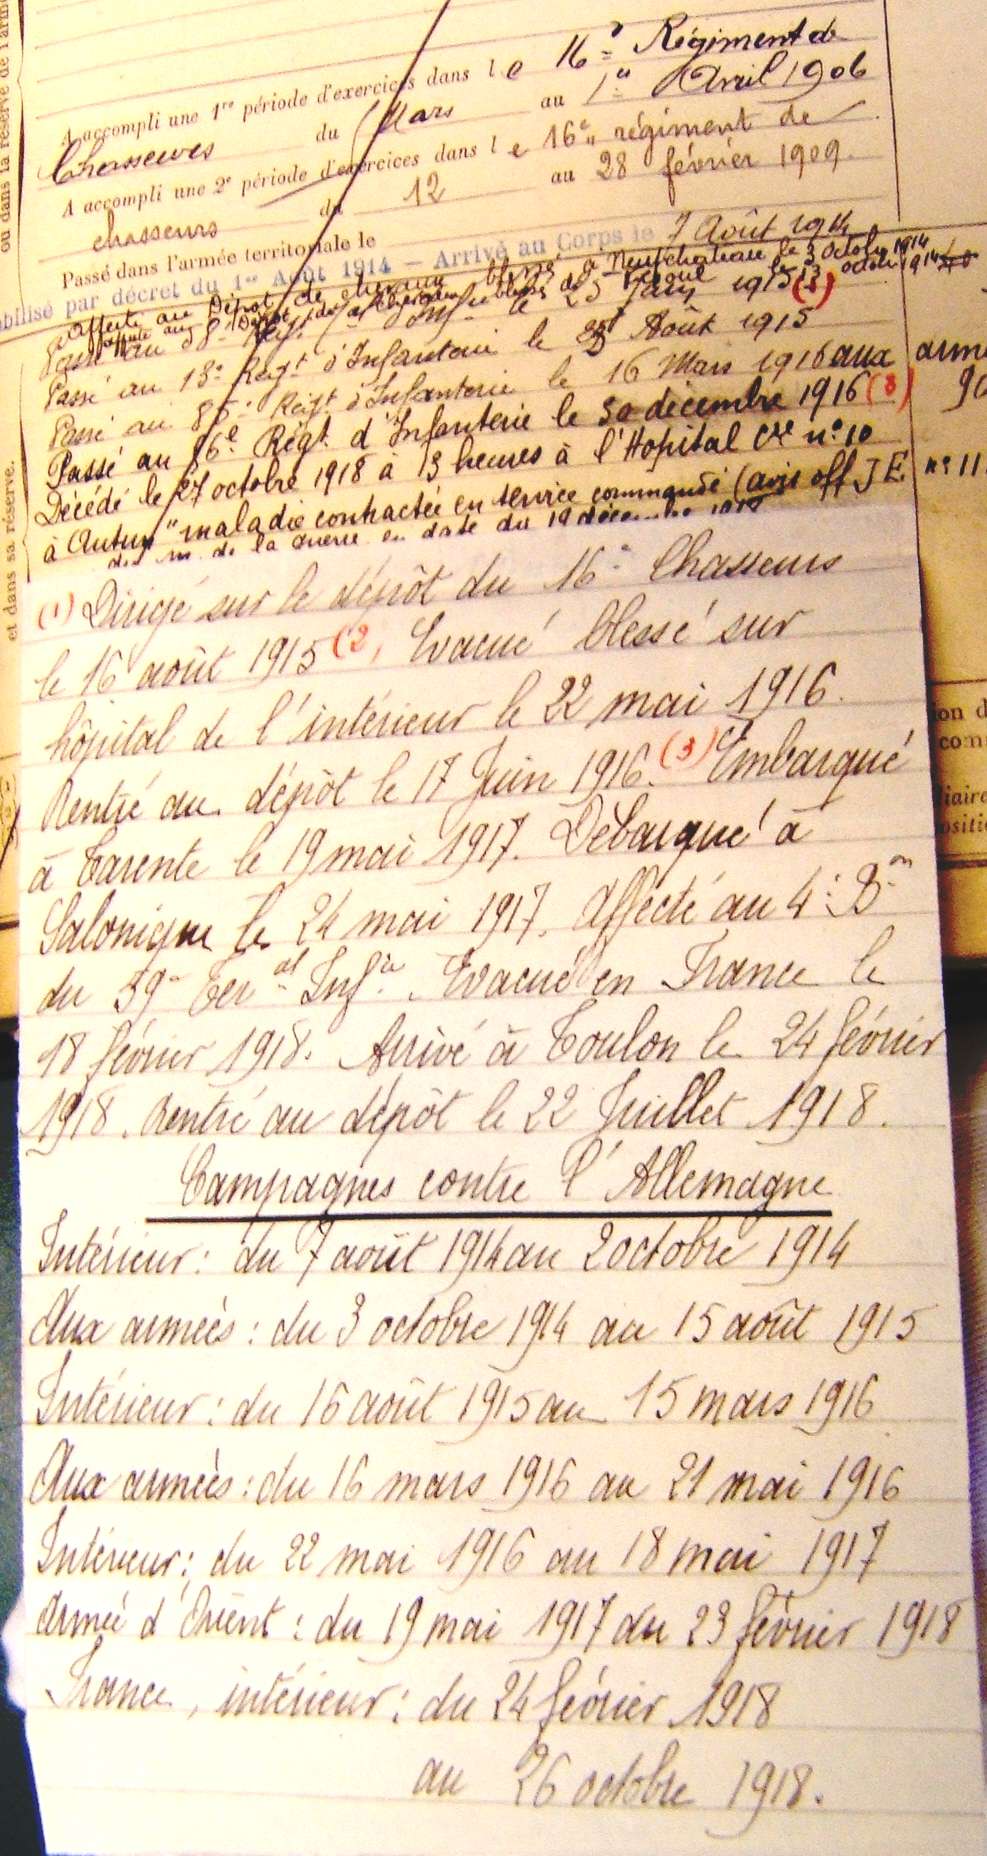 ou dans la réserve de l'armé
et dans sa réserve.
A accompli une 1re période d'exercices dans l e 16e Régiment de
Chasseurs du Mars au 1er Avril 1906
A accompli une 2e période d'exercices dans l e 16e régiment de
chasseurs du 12 au 28 février 1909.
Passé dans l'armée territoriale le
obilisé par décret du 1er Août 1914 – Arrivé au Corps le 7 Août 1914
Affecté au Dépôt de chevaux blessés à Neufchateau le 3 octobre 1914
Affecté au Dépôt de chevaux blessés de Vesoul le 13 octobre 1914
Passé au 8e Régt d'Inf le 25 Juin 1915 (1)
Passé au 13e Régt d'Infanterie le Août 1915
Passé au 85e Régt d'Infanterie le 16 Mars 1916 aux armé
Passé au 16e Régt d'Infanterie le 30 décembre 1916 (3)
Décédé le 27 octobre 1918 à 13 heures à l'Hopital Cre n° 10
à Autun "maladie contractée en service commandé (avis off J E n° 11
du m. de la Guerre en date du 19 décembre
(1) Dirigé sur le dépôt du 16e Chasseurs
le 16 août 1915 (2) Evacué blessé sur
hôpital de l'intérieur le 22 mai 1916.
Rentré au dépôt le 17 Juin 1916. (3) Embarqué
à Tarente le 19 mai 1917. Débarqué à
Salonique le 24 mai 1917. Affecté au 4e Bon
du 59e Teral Infie. Evacué en France le
18 février 1918. Arrivé à Toulon le 24 février
1918. Rentré au dépôt le 22 Juillet 1918.
Campagnes contre l'Allemagne
Intérieur : du 7 août 1914 au 2 octobre 1914
Aux armées : du 3 octobre 1914 au 15 août 1915
Intérieur : du 16 août 1915 au 15 mars 1916
Aux armées : du 16 mars 1916 au 21 mai 1916
Intérieur : du 22 mai 1916 au 18 mai 1917
Armée d'Orient : du 19 mai 1917 au 23 février 1918
France, intérieur : du 24 février 1918
au 26 octobre 1918.